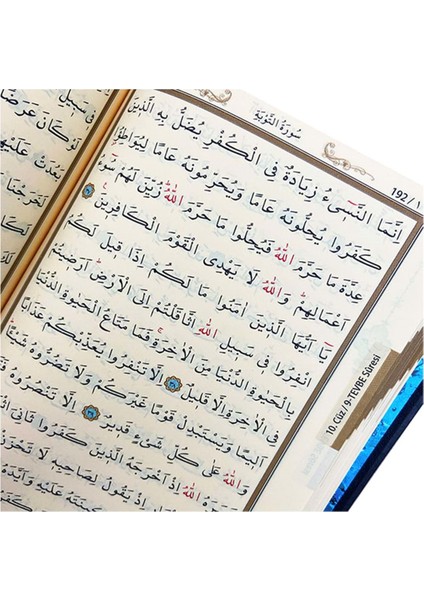 سُورَةُ التَّوْبَةِ
192 / 1
اِنَّمَا النَّس۪ٓيءُ زِيَادَةٌ فِي الْكُفْرِ يُضَلُّ بِهِ الَّذ۪ينَ
كَفَرُوا يُحِلُّونَهُ عَاماً وَيُحَرِّمُونَهُ عَاماً لِيُوَاطِؤُ۫ا
عِدَّةَ مَا حَرَّمَ اللّٰهُ فَيُحِلُّوا مَا حَرَّمَ اللّٰهُ زُيِّنَ لَهُمْ سُٓوءُ
اَعْمَالِهِمْ وَاللّٰهُ لَا يَهْدِي الْقَوْمَ الْكَافِر۪ينَ ٣٧
يَٓا اَيُّهَا الَّذ۪ينَ اٰمَنُوا مَا لَكُمْ اِذَا ق۪يلَ لَكُمُ
انْفِرُوا ف۪ي سَب۪يلِ اللّٰهِ اثَّاقَلْتُمْ اِلَى الْاَرْضِ اَرَض۪يتُمْ
بِالْحَيٰوةِ الدُّنْيَا مِنَ الْاٰخِرَةِ فَمَا مَتَاعُ الْحَيٰوةِ الدُّنْيَا
فِي الْاٰخِرَةِ اِلَّا قَل۪يلٌ ٣٨ اِلَّا تَنْفِرُوا يُعَذِّبْكُمْ عَذَاباً
اَل۪يماً وَيَسْتَبْدِلْ قَوْماً غَيْرَكُمْ وَلَا تَضُرُّوهُ شَيْـٔاً
وَاللّٰهُ عَلٰى كُلِّ شَيْءٍ قَد۪يرٌ ٣٩ اِلَّا تَنْصُرُوهُ
اللّٰهُ اِذْ اَخْرَجَهُ الَّذ۪ينَ كَفَرُوا ثَانِيَ
اِذْ يَقُولُ لِصَاحِبِه۪ لَا تَحْزَنْ
عَلَيْهِ وَاَيَّدَهُ
10. Cüz / 9-TEVBE Sûresi
ف۪ي سَب۪يلِ
لَوْ كَانَ عَرَضاً
بَعُدَتْ عَلَيْهِمُ
لَخَرَجْنَا